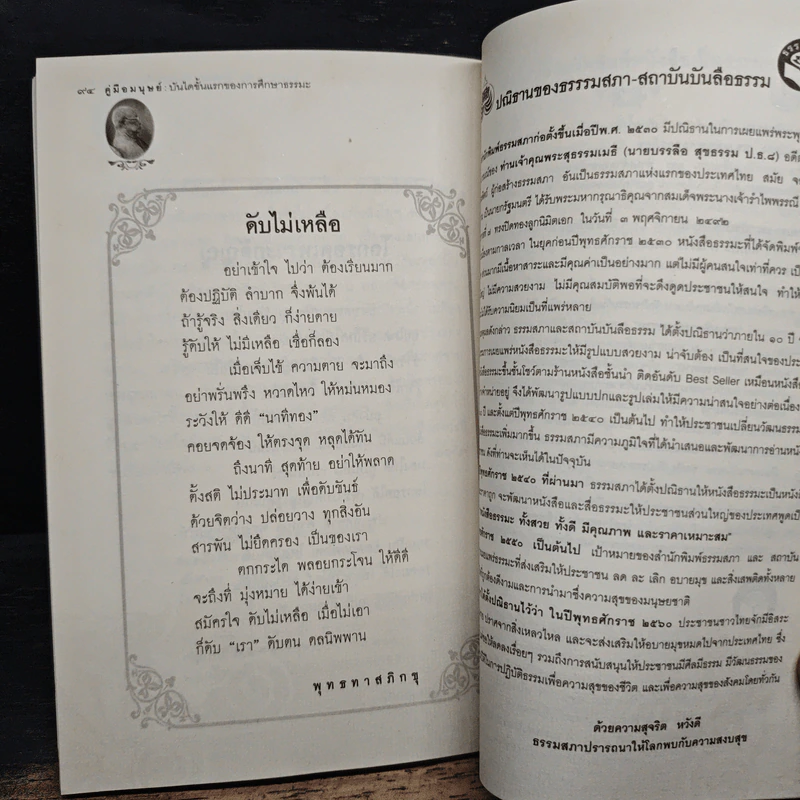 ๙๔ คู่มือมนุษย์ : บันไดขั้นแรกของการศึกษาธรรมะ
ดับไม่เหลือ
อย่าเข้าใจ ไปว่า ต้องเรียนมาก
ต้องปฏิบัติ ลำบาก จึงพ้นได้
ถ้ารู้จริง สิ่งเดียว ก็ง่ายดาย
รู้ดับให้ ไม่มีเหลือ เชื่อก็ลอง
เมื่อเจ็บไข้ ความตาย จะมาถึง
อย่าพรั่นพรึง หวาดไหว ให้หม่นหมอง
ระวังให้ ดีดี "นาทีทอง"
คอยจดจ้อง ให้ตรงจุด หลุดได้ทัน
ถึงนาที สุดท้าย อย่าให้พลาด
ตั้งสติ ไม่ประมาท เพื่อดับขันธ์
ด้วยจิตว่าง ปล่อยวาง ทุกสิ่งอัน
สารพัน ไม่ยึดครอง เป็นของเรา
ตกกระได พลอยกระโจน ให้ดีดี
จะถึงที่ มุ่งหมาย ได้ง่ายเข้า
สมัครใจ ดับไม่เหลือ เมื่อไม่เอา
ก็ดับ "เรา" ดับตน ดลนิพพาน
พุทธทาสภิกขุ
ปณิธานของธรรมสภา-สถาบันบันลือธรรม
พิมพ์ธรรมสภาก่อตั้งขึ้นเมื่อปีพ.ศ. ๒๕๓๐ มีปณิธานในการเผยแพร่พระพุ
ของ ท่านเจ้าคุณพระสุธรรมเมธี (นายบรรลือ สุขธรรม ป.ธ.๘) อดี
ผู้ก่อสร้างธรรมสภา อันเป็นธรรมสภาแห่งแรกของประเทศไทย สมัย
เป็นนายกรัฐมนตรี ได้รับพระมหากรุณาธิคุณจากสมเด็จพระนางเจ้ารำไพพรรณี
ที่ ๗ ทรงปิดทองลูกนิมิตเอก ในวันที่ ๓ พฤศจิกายน ๒๔๙๒
ตามกาลเวลา ในยุคก่อนปีพุทธศักราช ๒๕๓๐ หนังสือธรรมะที่ได้จัดพิมพ์
มากมีเนื้อหาสาระและมีคุณค่าเป็นอย่างมาก แต่ไม่มีผู้คนสนใจเท่าที่ควร
ไม่มีความสวยงาม ไม่มีคุณสมบัติพอที่จะดึงดูดประชาชนให้สนใจ ทำให้
ได้รับความนิยมเป็นที่แพร่หลาย
ดังกล่าว ธรรมสภาและสถาบันบันลือธรรม ได้ตั้งปณิธานว่าภายใน ๑๐ ปี
การเผยแพร่หนังสือธรรมะให้มีรูปแบบสวยงาม น่าจับต้อง เป็นที่สนใจของประ
ธรรมะขึ้นชั้นโชว์ตามร้านหนังสือชั้นนำ ติดอันดับ Best Seller เหมือนหนังสือ
จำหน่ายอยู่ จึงได้พัฒนารูปแบบปกและรูปเล่มให้มีความน่าสนใจอย่างต่อเนื่อง
ปี และตั้งแต่ปีพุทธศักราช ๒๕๔๐ เป็นต้นไป ทำให้ประชาชนเปลี่ยนวัฒนธรรม
ธรรมะเพิ่มมากขึ้น ธรรมสภามีความภูมิใจที่ได้นำเสนอและพัฒนาการอ่านหนัง
ดังที่ท่านจะเห็นได้ในปัจจุบัน
พุทธศักราช ๒๕๔๐ ที่ผ่านมา ธรรมสภาได้ตั้งปณิธานให้หนังสือธรรมะเป็นหนังสือ
จะพัฒนาหนังสือและสื่อธรรมะให้ประชาชนส่วนใหญ่ของประเทศพูดเป็
หนังสือธรรมะ ทั้งสวย ทั้งดี มีคุณภาพ และราคาเหมาะสม"
ศักราช ๒๕๕๐ เป็นต้นไป เป้าหมายของสำนักพิมพ์ธรรมสภา และ สถาบัน
เผยแพร่ธรรมะที่ส่งเสริมให้ประชาชน ลด ละ เลิก อบายมุข และสิ่งเสพติดทั้งหลาย
ต้องดีงามและการนำมาซึ่งความสุขของมนุษยชาติ
ได้ตั้งปณิธานไว้ว่า ในปีพุทธศักราช ๒๕๖๐ ประชาชนชาวไทยจักมีอิสระ
ปราศจากสิ่งเหลวไหล และจะส่งเสริมให้อบายมุขหมดไปจากประเทศไทย ซึ่ง
ให้ลดลงเรื่อยๆ รวมถึงการสนับสนุนให้ประชาชนมีศีลมีธรรม มีวัฒนธรรมของ
ในการปฏิบัติธรรมเพื่อความสุขของชีวิต และเพื่อความสุขของสังคมโดยทั่วกัน
ด้วยความสุจริต หวังดี
ธรรมสภาปรารถนาให้โลกพบกับความสงบสุข